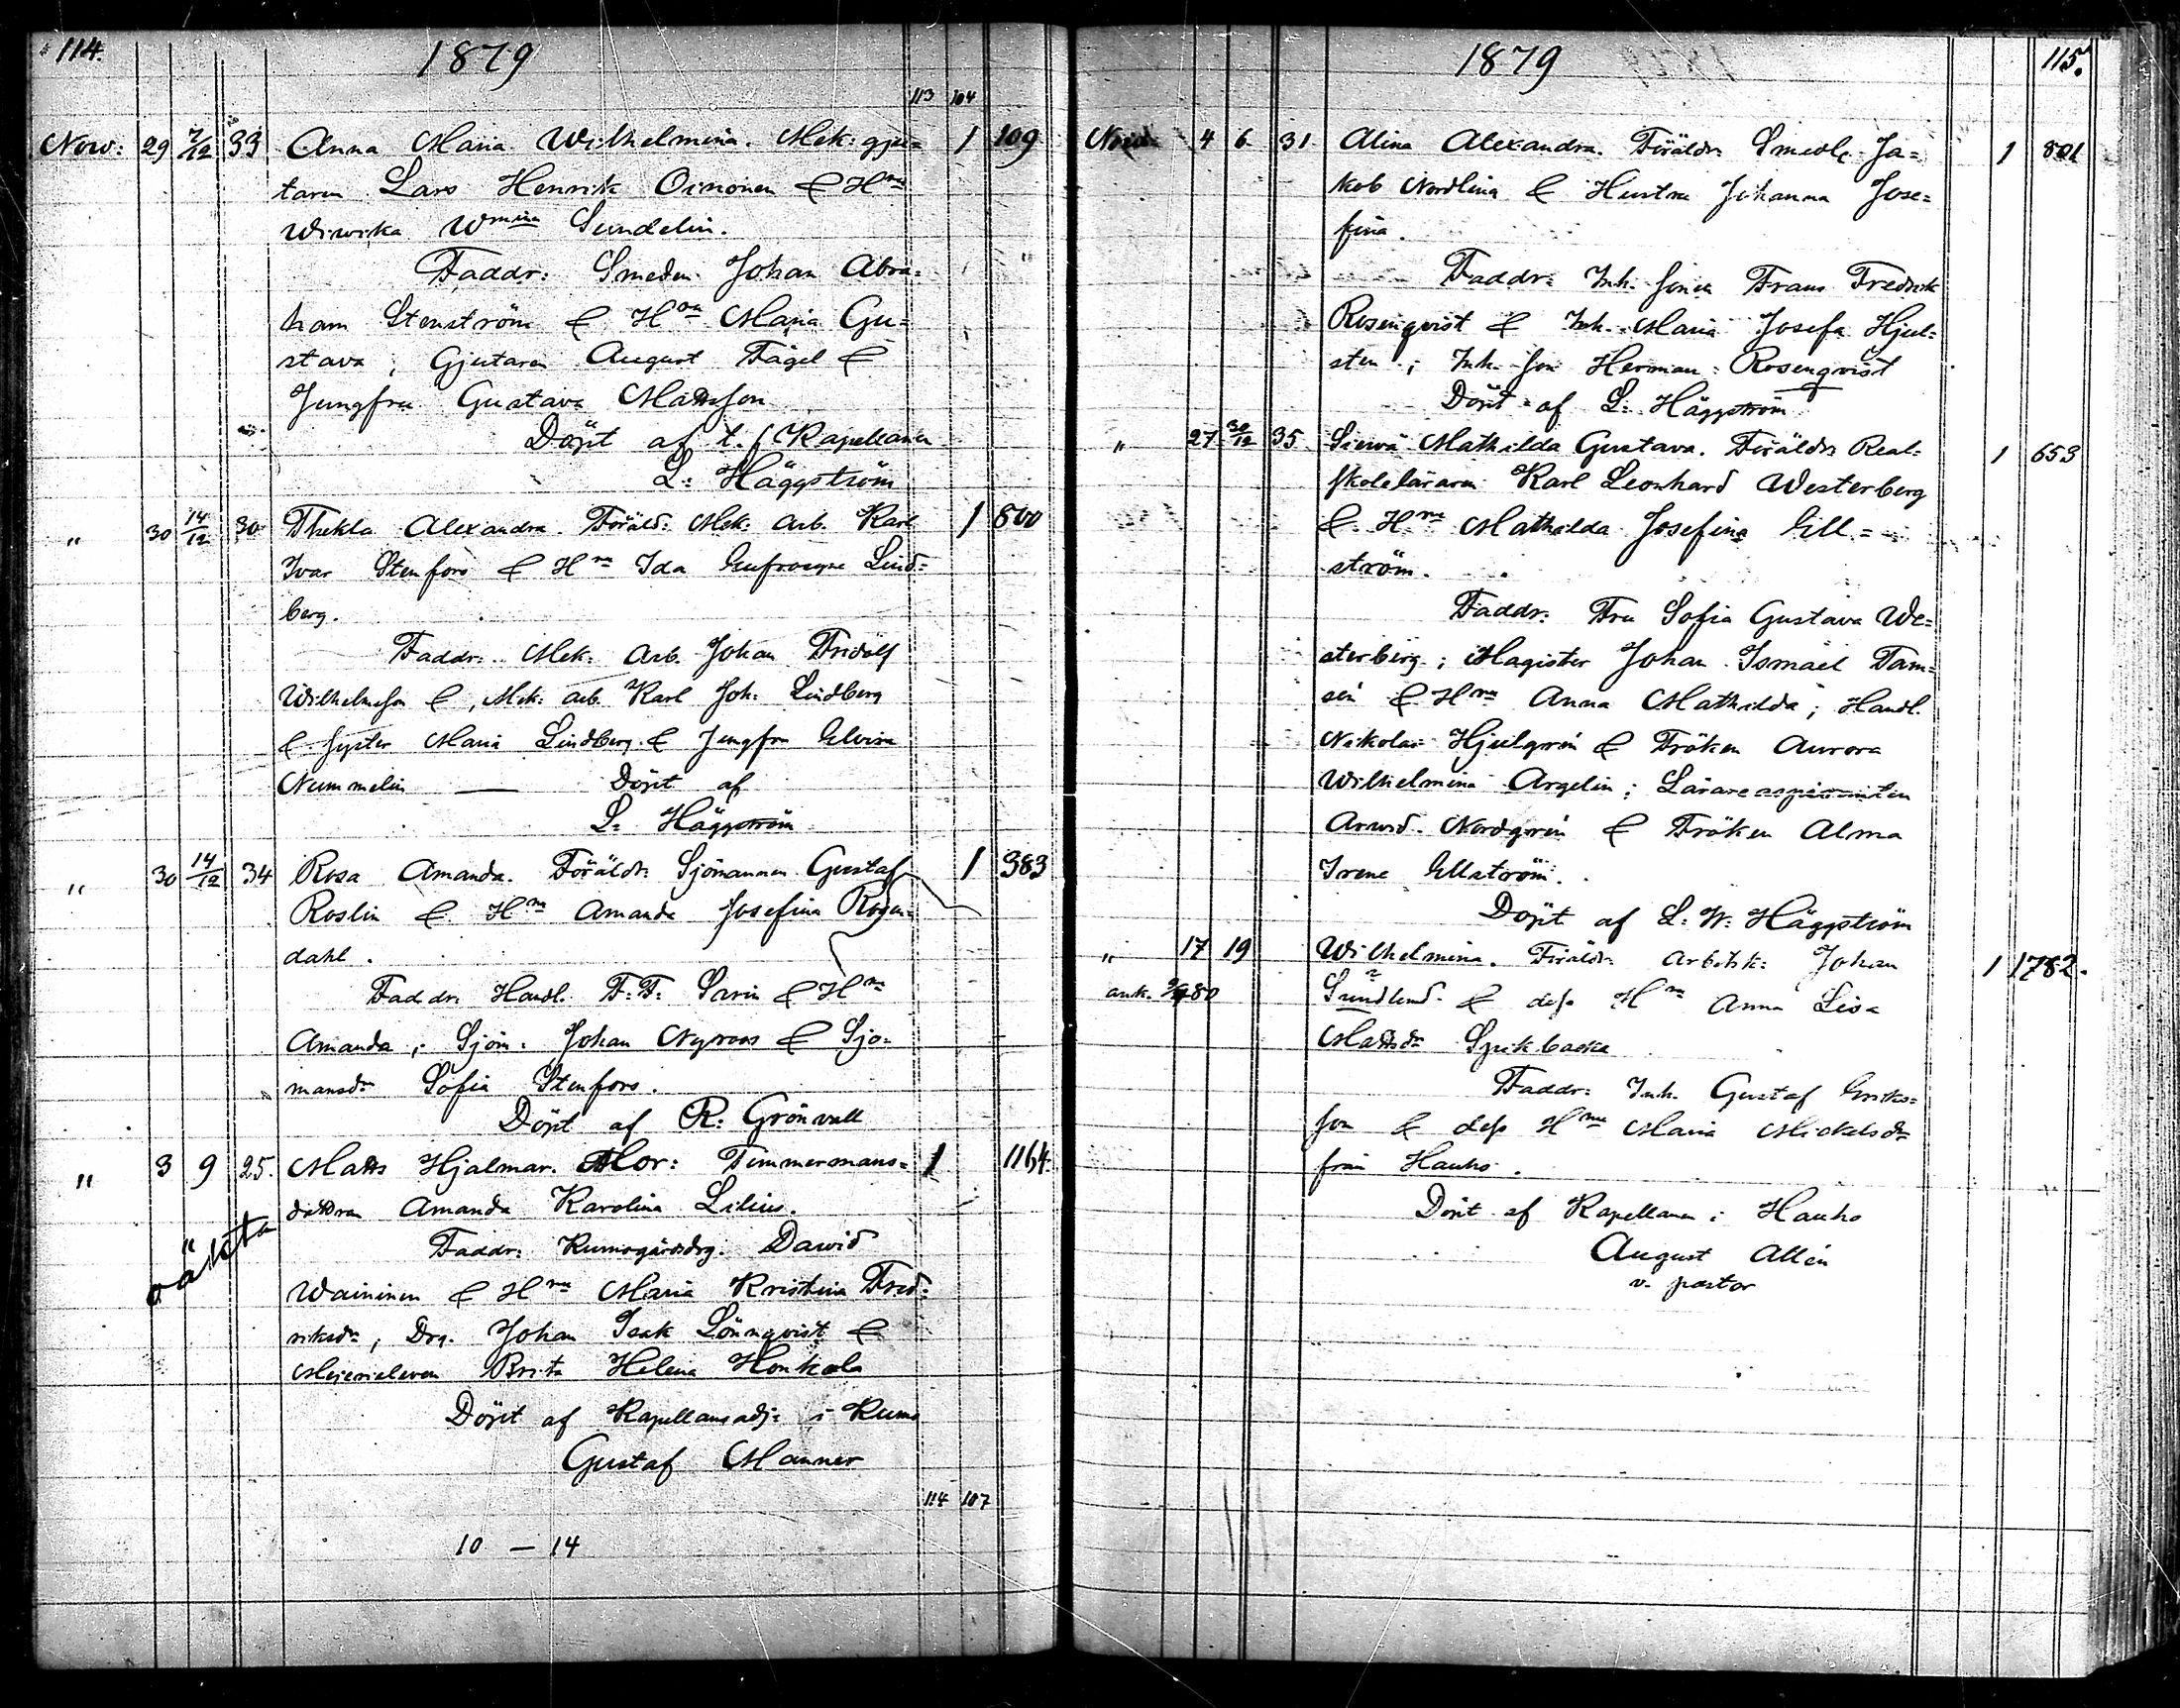 114.
1879
113 104
Nov: 29 7/12 33 Anna Maria Wilhelmina. Mek: gju= 1 109
taren Lars Henrik Oinonen & Hru
Wiwika Wmina Sundelin.
Faddr: Smeden Johan Abra=
ham Stenström & Hru Maria Gu=
stava; Gjutaren August Fagel &
Jungfru Gustava Mattsson
Döpt af t. f. Kapellanen
L: Häggström
" 30 14/12 30 Thekla Alexandra. Föräld: Mek. Arb. Karl 1 800
Ivar Stenfors & Hru Ida Eufrosyne Lind=
berg.
Faddr: Mek: Arb. Johan Fridolf
Wilhelmsson &, Mek: arb. Karl Joh: Lindberg
& syster Maria Lindberg & Jungfru Elvira
Nummelin — Döpt af
L: Häggström
" 30 14/12 34 Rosa Amanda. Föräldr: Sjömannen Gustaf 1 383
Roslin & Hru Amanda Josefina Rosen=
dahl.
Faddr: Handl. F: F: Sarin & Hru
Amanda; Sjöm: Johan Nyroos & Sjö=
mansdr Sofia Stenfors.
Döpt af R: Grönvall
" 3 9 25. Matts Hjalmar. Mor: Timmermans= 1 1164
dottren Amanda Karolina Lilius.
oäkta
Faddr: Kumogårdsdrg. David
Waininen & Hru Maria Kristina Fred=
riksdr; Drg. Johan Isak Lönnqvist &
Mejerieleven Brita Helena Honkala
Döpt af Kapellansadj: i Kumo
Gustaf Manner
114 107
10 — 14
1879
115.
4 6 31 Alina Alexandra. Föräldr: Smedl. Ja= 1 801
kob Nordlin & Hustru Johanna Jose=
fina.
Faddr: Inh. sonen Frans Fredrik
Rosenqvist & Inh. Maria Josefa Hjul=
sten; Inh. son Herman Rosenqvist
Döpt af L: Häggström
" 27 30/12 35 Mathilda Gustava. Föräldr: Real= 1 653
skoleläraren Karl Leonhard Westerberg
& Hru Mathilda Josefina Ell=
ström.
Faddr: Fru Sofia Gustava We=
sterberg; Magister Johan Ismael Tam=
sén & Hru Anna Mathilda; Handl.
Nikolai Hjulgrén & Fröken Aurora
Wilhelmina Argelin; Lärareaspiranten
Arvid Nordgrén & Fröken Alma
Irene Ellström.
Döpt af L: W: Häggström
" 17 19 Wilhelmina. Föräldr: Arbetsk: Johan 1 1782.
ank. 80 Sundlund & dess Hru Anna Lisa
Mattsdr Spikbacka
Faddr: Inh. Gustaf Eriks=
son & dess Hru Maria Mickelsdr
från Hauho.
Döpt af Kapellanen i Hauho
August Allén
v. pastor